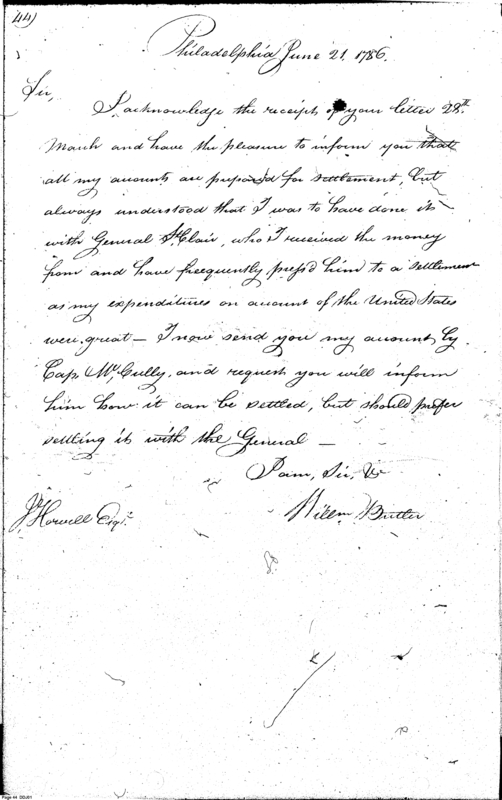 44)
Philadelphia June 21. 1786.
Sir,
I acknowledge the receipt of your letter 28th
March and have the pleasure to inform you that
all my accounts are prepared for settlement, but
always understood that I was to have done it
with General St Clair, who I received the money
from and have freequently press'd him to a settlement
as my expenditures on account of the United States
were great – I now send you my account by
Cap. Mc Cully, and request you will inform
him how it can be settled, but should prefer
settling it with the General –
I am, Sir, &c
Willm Butler
Js Howell Esqr
Page 44